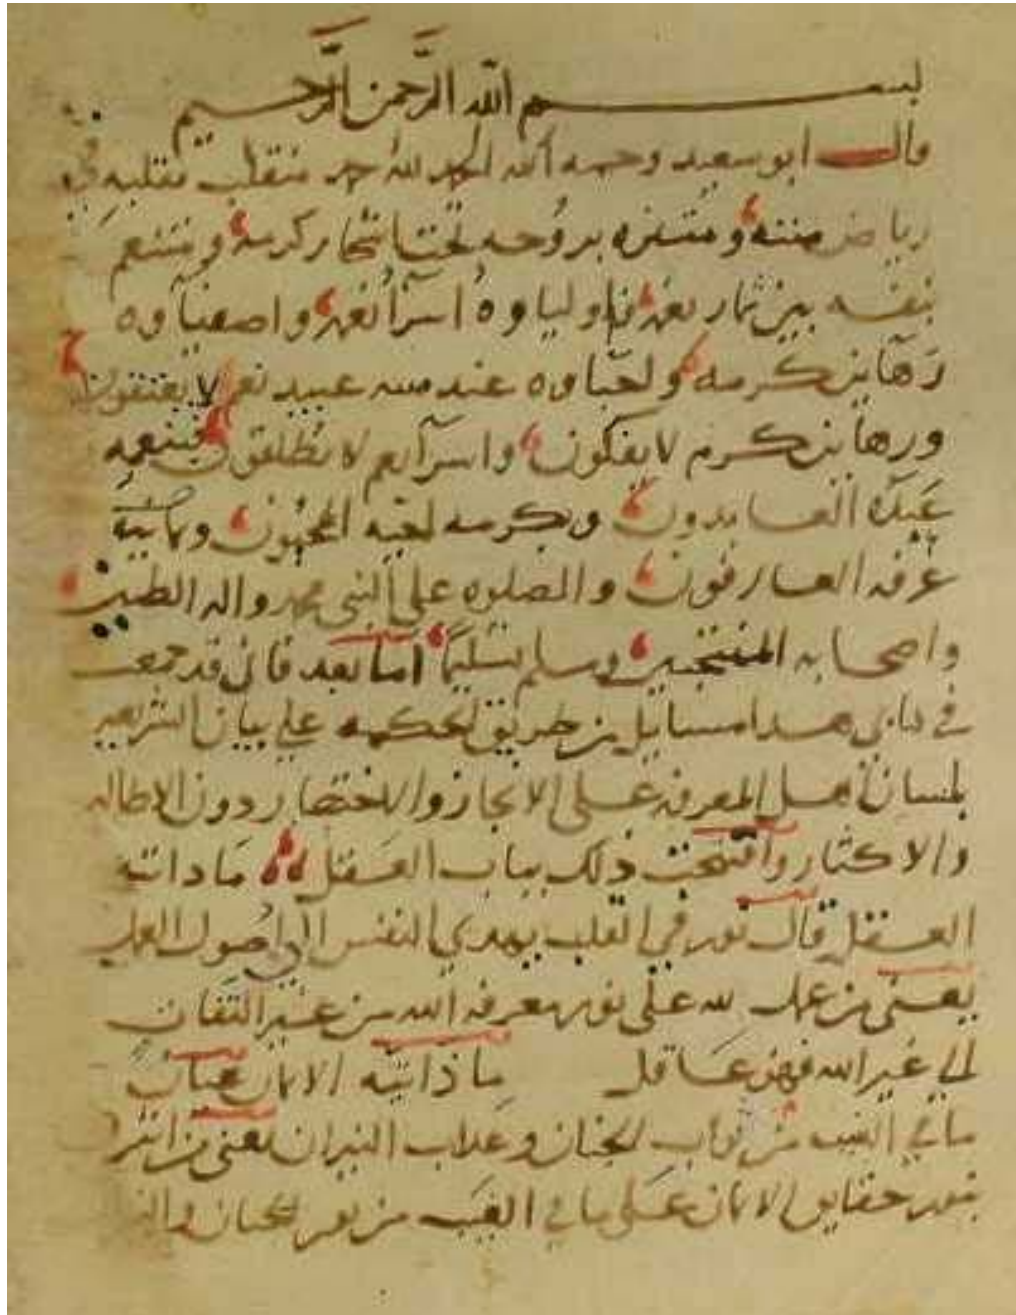 بسم الله الرحمن الرحيم
قال ابو سعيد رحمه الله الحمد لله حمد متقلب بقلبه في
رياض مننه ومتنزه بروحه تحت اشجار كرمه ومتنعم
بنفسه بين ثمار نعمه اولياوه اسرآ نعمه واصفياوه
رهاين كرمه واحباوه عند مننه عبيد نعم لا يعتقون
ورهاين كرم لا يفكون واسرآ نعم لا يطلقون فبنعمه
عبده العابدون وبكرمه احبه المحبون وبمنته
عرفه العارفون والصلوه على النبي محمد واله الطيبين
واصحابه المنتجبين وسلم تسليما اما بعد فاني قد جمعت
في كتابي هذا مسايل من طريق الحكمه على بيان الشريعه
بلسان اهل المعرفه على الايجاز والاختصار دون الاطاله
والاكثار وافتتحت ذلك بباب العقل ما داتيه
العقل قال نور في القلب يهدي النفس الى اصول العلم
يعني من عمل لله على نور معرفه الله من غير التفات
الى غير الله فهو عاقل ما ذاتيه الايمان
ما في الغيب من ثواب الجنان وعذاب النيران يعني من اشرف
بنور حقايق الايمان على ما في الغيب من نور الجنان